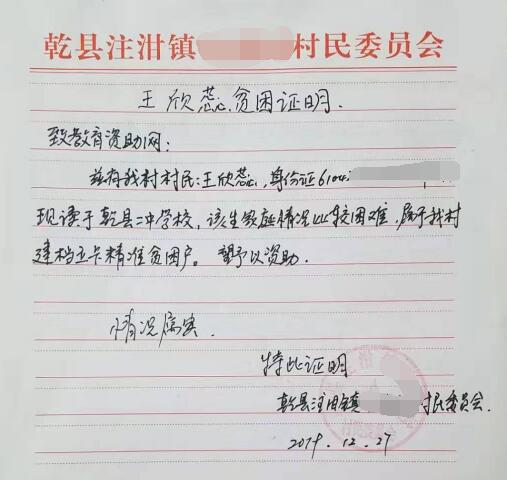 乾县注泔镇 村民委员会
王欣蕊贫困证明.
致教育资助网:
兹有我村村民:王欣蕊,身份证6104
现读于乾县二中学校,该生家庭情况比较困难,属于我村
建档立卡精准贫困户。望予以资助.
情况属实.
特此证明
乾县注泔镇 村民委员会.
2019.12.27